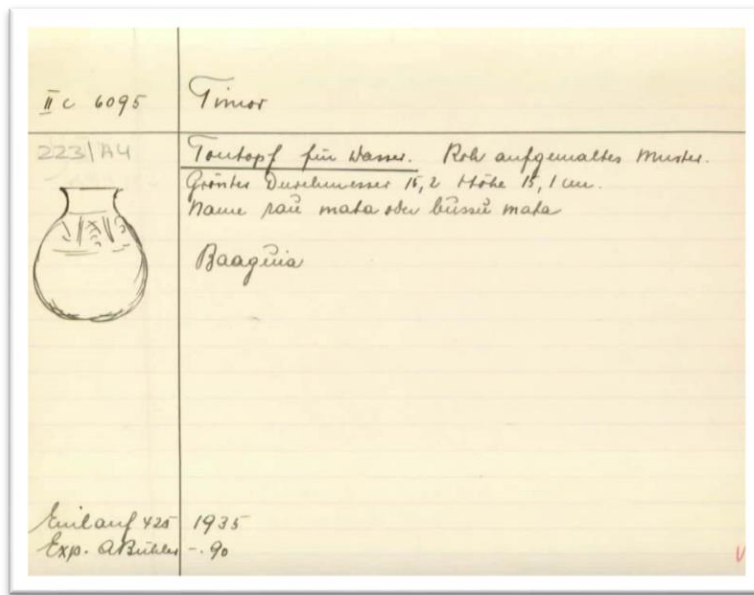 II c 6095 Timor
223/A4
Tontopf für Wasser. Roh aufgemaltes Muster.
Grösster Durchmesser 15,2 Höhe 15,1 cm.
Name raü mata oder büssü mata
Baaguia
Einlauf 425 1935
Exp. A Bühler -. 90
V